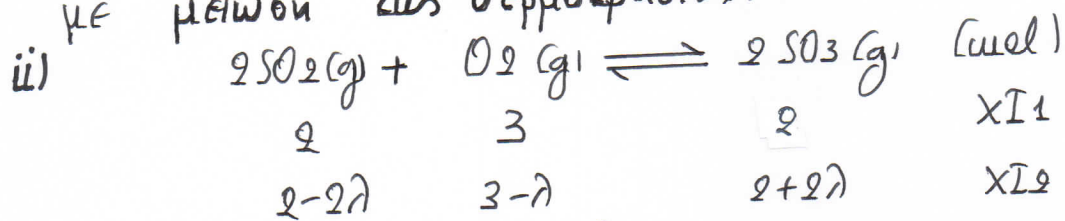 με μείωση της θερμοκρασίας
ii) 2SO2(g) + O2(g) ⇌ 2SO3(g) (mol)
2 3 2 XI1
2-2λ 3-λ 2+2λ XI2